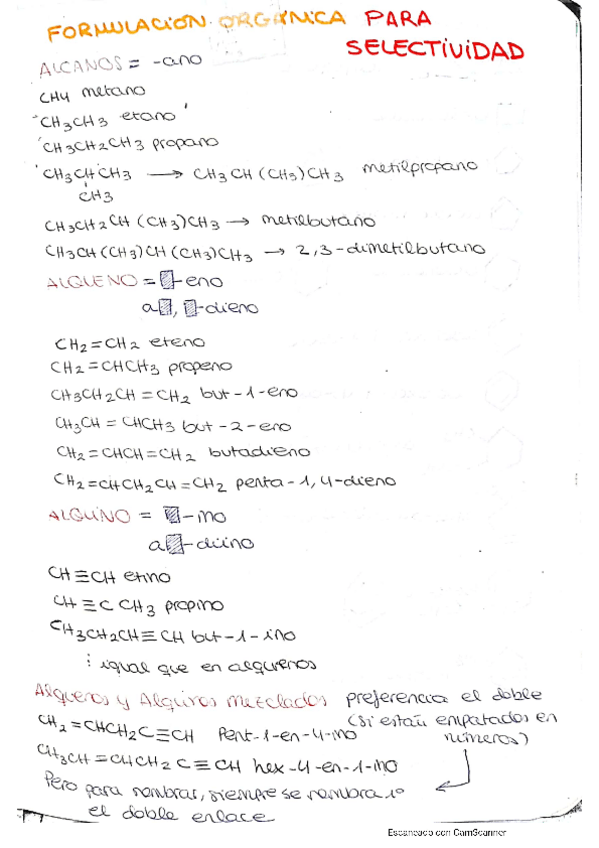 FORMULACIÓN ORGÁNICA PARA
SELECTIVIDAD
ALCANOS = -ano
CH4 metano
CH3CH3 etano
CH3CH2CH3 propano
CH3CHCH3 → CH3CH(CH3)CH3 metilpropano
CH3
CH3CH2CH(CH3)CH3 → metilbutano
CH3CH(CH3)CH(CH3)CH3 → 2,3-dimetilbutano
ALQUENO = -eno
a , -dieno
CH2=CH2 eteno
CH2=CHCH3 propeno
CH3CH2CH=CH2 but-1-eno
CH3CH=CHCH3 but-2-eno
CH2=CHCH=CH2 butadieno
CH2=CHCH2CH=CH2 penta-1,4-dieno
ALQUINO = -ino
a -diino
CH≡CH etino
CH≡CCH3 propino
CH3CH2CH≡CH but-1-ino
⋮ igual que en alquenos
Alquenos y Alquinos mezclados preferencia el doble
(si están empatados en
números)
CH2=CHCH2C≡CH Pent-1-en-4-ino
CH3CH=CHCH2C≡CH hex-4-en-1-ino
Pero para nombrar, siempre se nombra 1º
el doble enlace
Escaneado con CamScanner